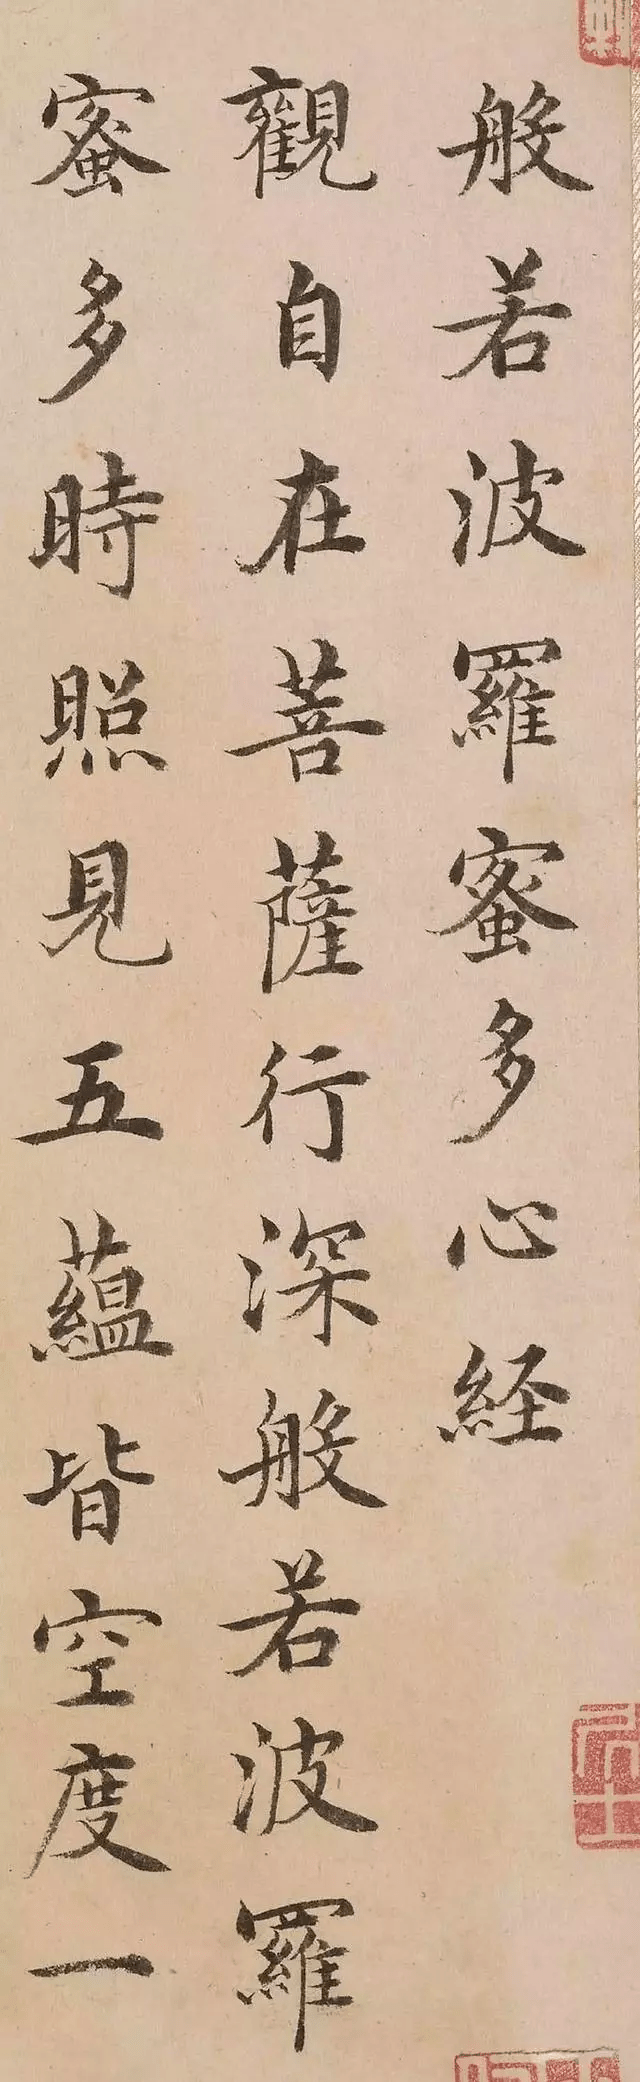 般若波羅蜜多心経
觀自在菩薩行深般若波羅
蜜多時照見五蘊皆空度一